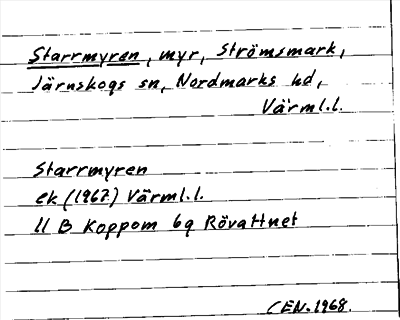 Starrmyren, myr, Strömsmark,
Järnskogs sn, Nordmarks hd,
Värml.l.
Starrmyren
ek (1967) Värml.l.
11 B Koppom 6g Rövattnet
CEN.1968.